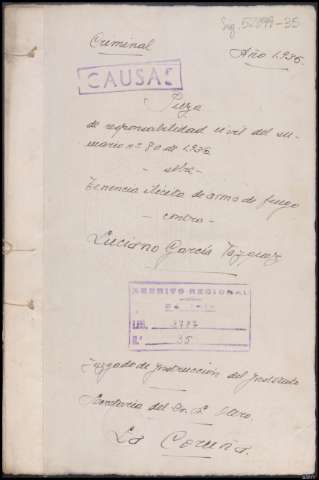 Sig. 52899-35
Criminal Año 1.936.
CAUSAS
Pieza
de responsabilidad civil del su-
mario nº 80 de 1.936
- sobre -
Tenencia ilícita de arma de fuego
- contra -
Luciano García Vázquez
ARCHIVO REGIONAL
GALICIA
LEG. 3787
N.º 35
Juzgado de Instrucción del Instituto
Secretaría del Sr. Otero.
La Coruña.